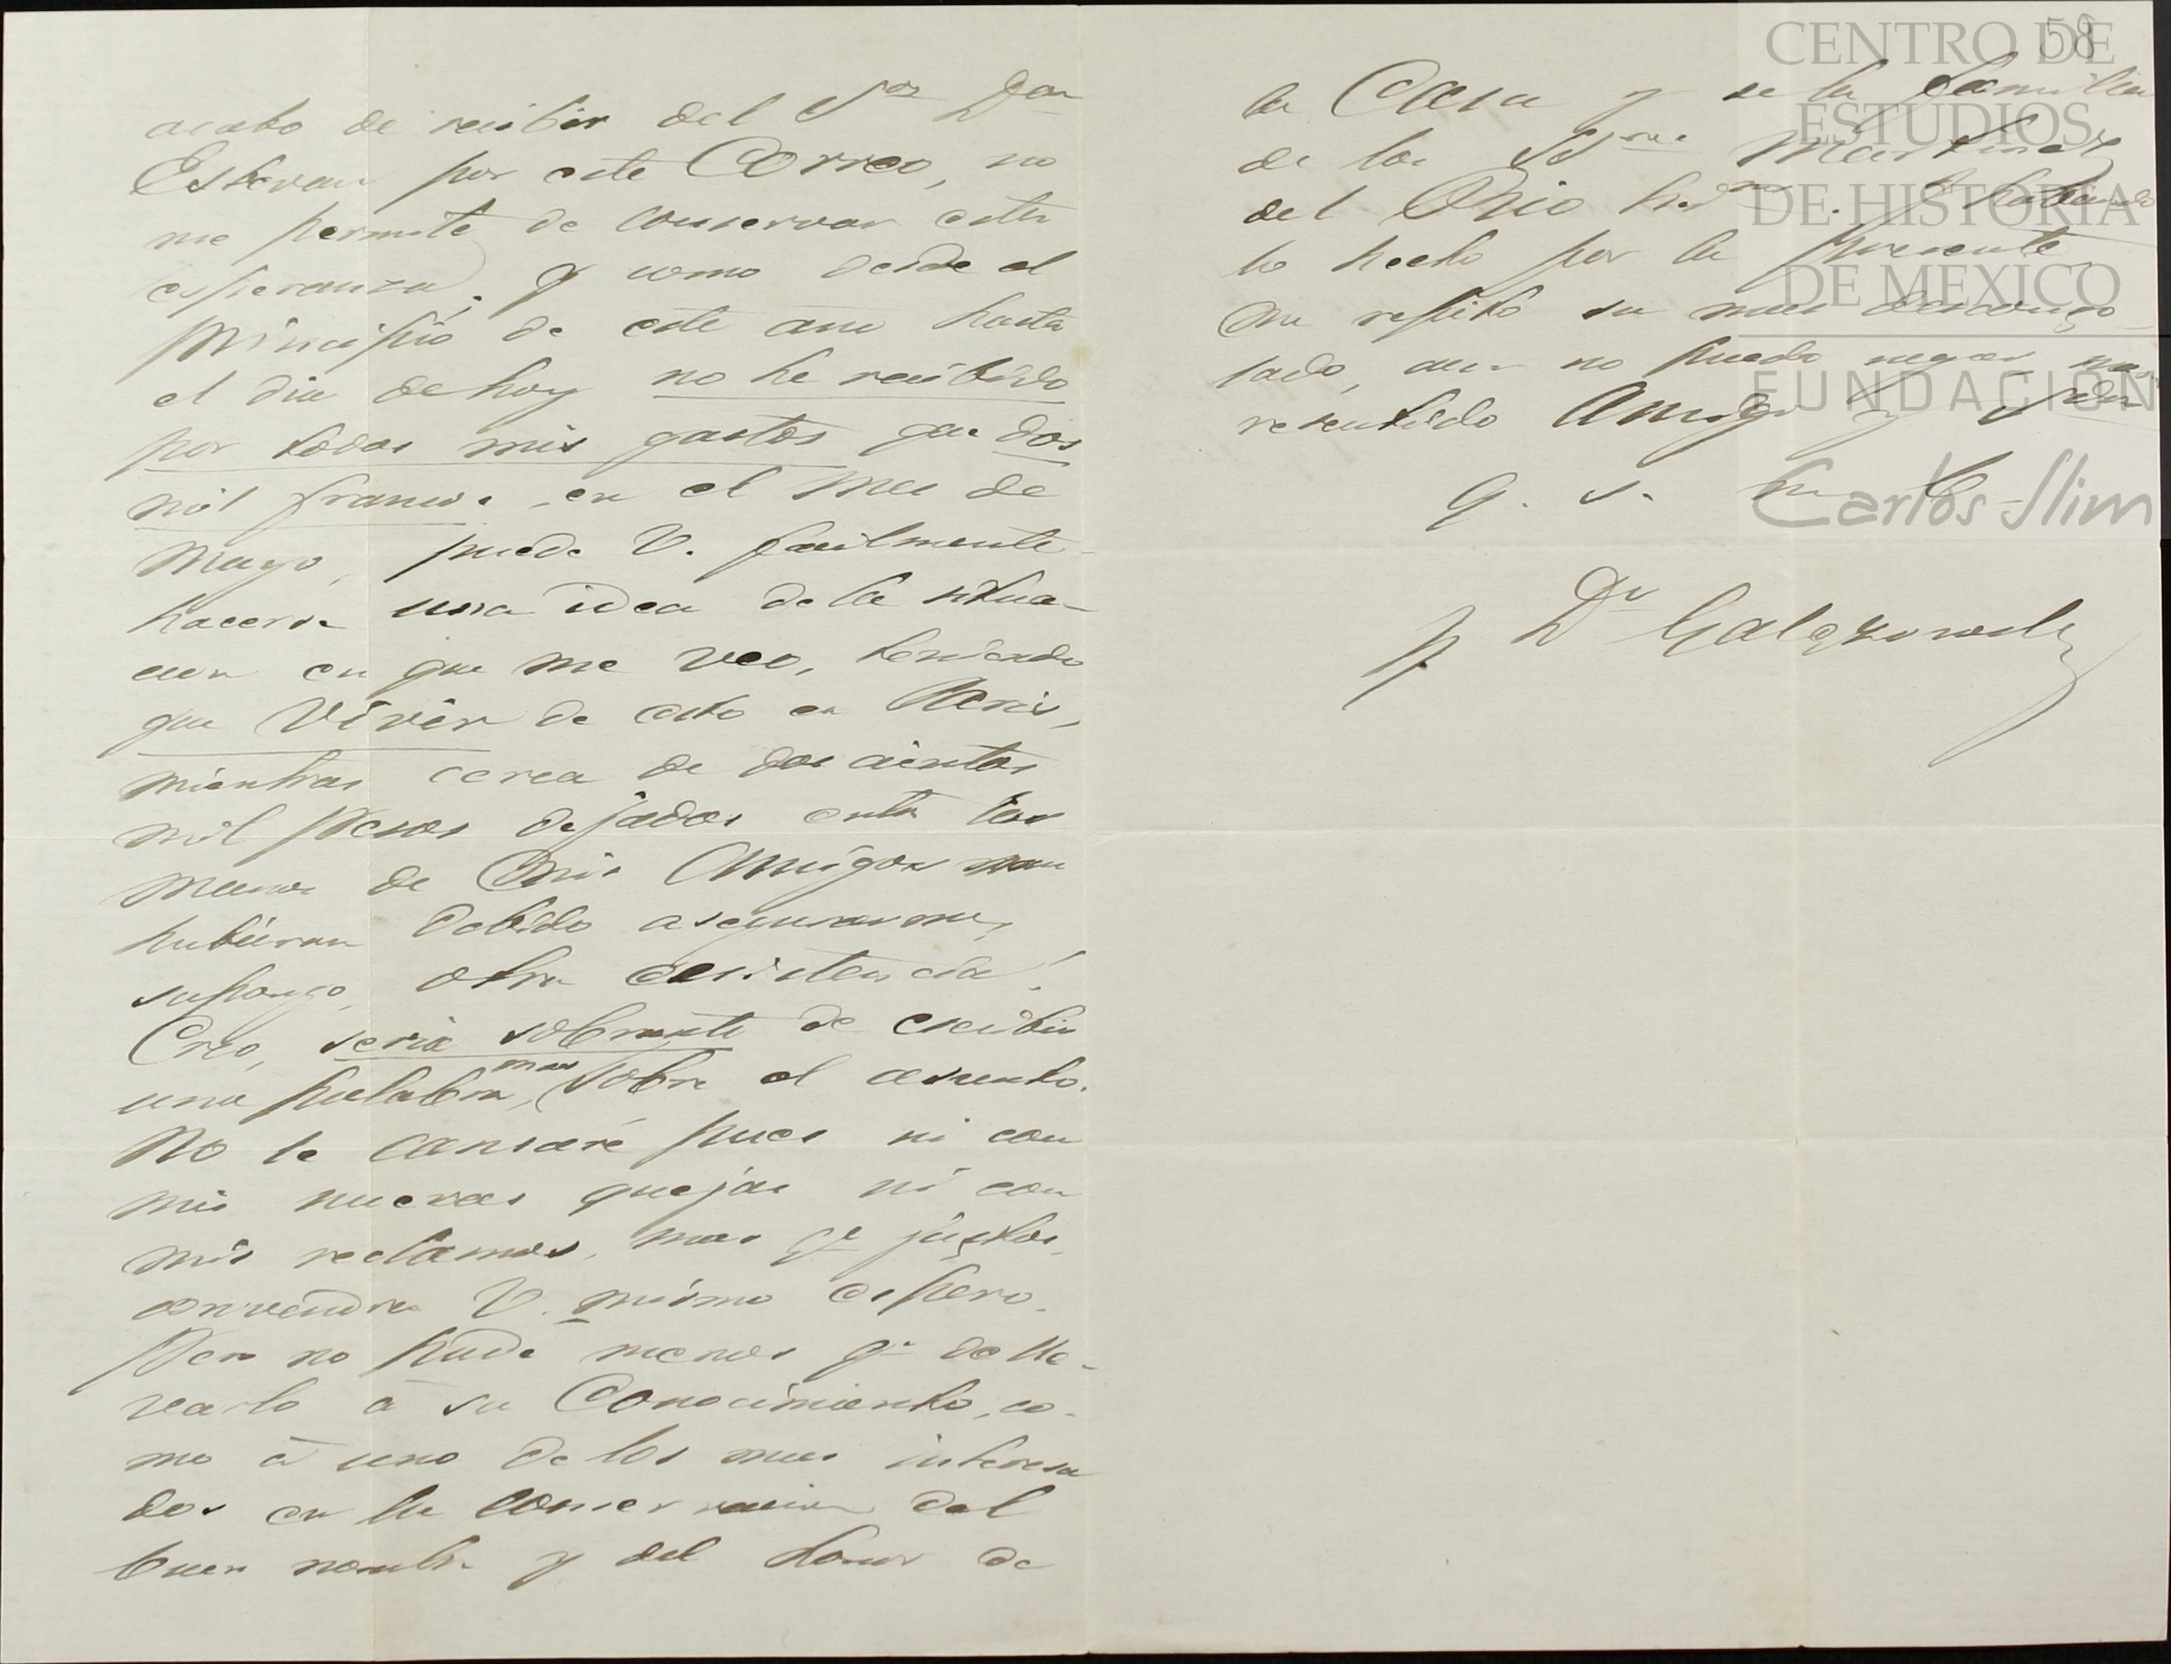 acabo de recibir del Sor Don
Estevan por este Correo, no
me permite de conservar esta
esperanza; y como desde el
principio de este año hasta
el dia de hoy no he recibido
por todos mis gastos que dos
mil francos en el mes de
Mayo, puede V. facilmente
hacerse una idea de la situa-
cion en que me veo, teniendo
que vivir de esto en Paris,
mientras cerca de dos cientos
mil pesos dejados entre las
manos de Mis Amigos me
hubieran debido asegurarme,
supongo, otra ecsistencia!
Creo, seria sobrante de escribir
una palabra mas sobre el asunto.
No le cansaré pues ni con
mis nuevas quejas ni con
mis reclamos, mas qe justos,
convendra V. mismo espero.
Pero no pude menos qe de lle-
varlo á su Conocimiento, co-
mo á uno de los mas interesa
dos en la conservacion del
buen nombre y del honor de
58
la Casa y de la familia
de los SSres Martinez
del Rio hermos. Habiendo
lo hecho por la presente
me repito su mas desconso-
lado, aun no puedo negar, mas
resentido Amigo y Sdor
q. s. m. b.
Dr Galezowski
CENTRO DE
ESTUDIOS
DE HISTORIA
DE MEXICO
FUNDACIÓN
Carlos Slim